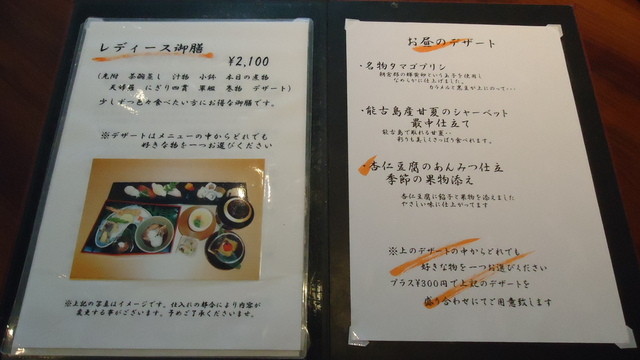 レディース御膳
¥2,100
(先附 茶碗蒸し 汁物 小鉢 本日の煮物
天婦羅 にぎり四貫 軍艦 巻物 デザート)
少しずつ色々食べたい方にお得な御膳です。
※デザートはメニューの中からどれでも
好きな物を一つお選びください
※上記の写真はイメージです。仕入れの都合により内容が
変更する事がございます。予めご了承くださいませ。
お昼のデザート
・名物タマゴプリン
というお子を使用し
なめらかに仕上げました。
カラメルと黒豆が上にのって・・・
・能古島産甘夏のシャーベット
最中仕立て
能古島で取れる甘夏・・
彩りも美しくさっぱり食べれます。
・杏仁豆腐のあんみつ仕立
季節の果物添え
杏仁豆腐に餡子と果物を添えました
やさしい味に仕上がってます
※上のデザートの中からどれでも
好きな物を一つお選びください
プラス¥300円で上記のデザートを
盛り合わせにてご用意致します